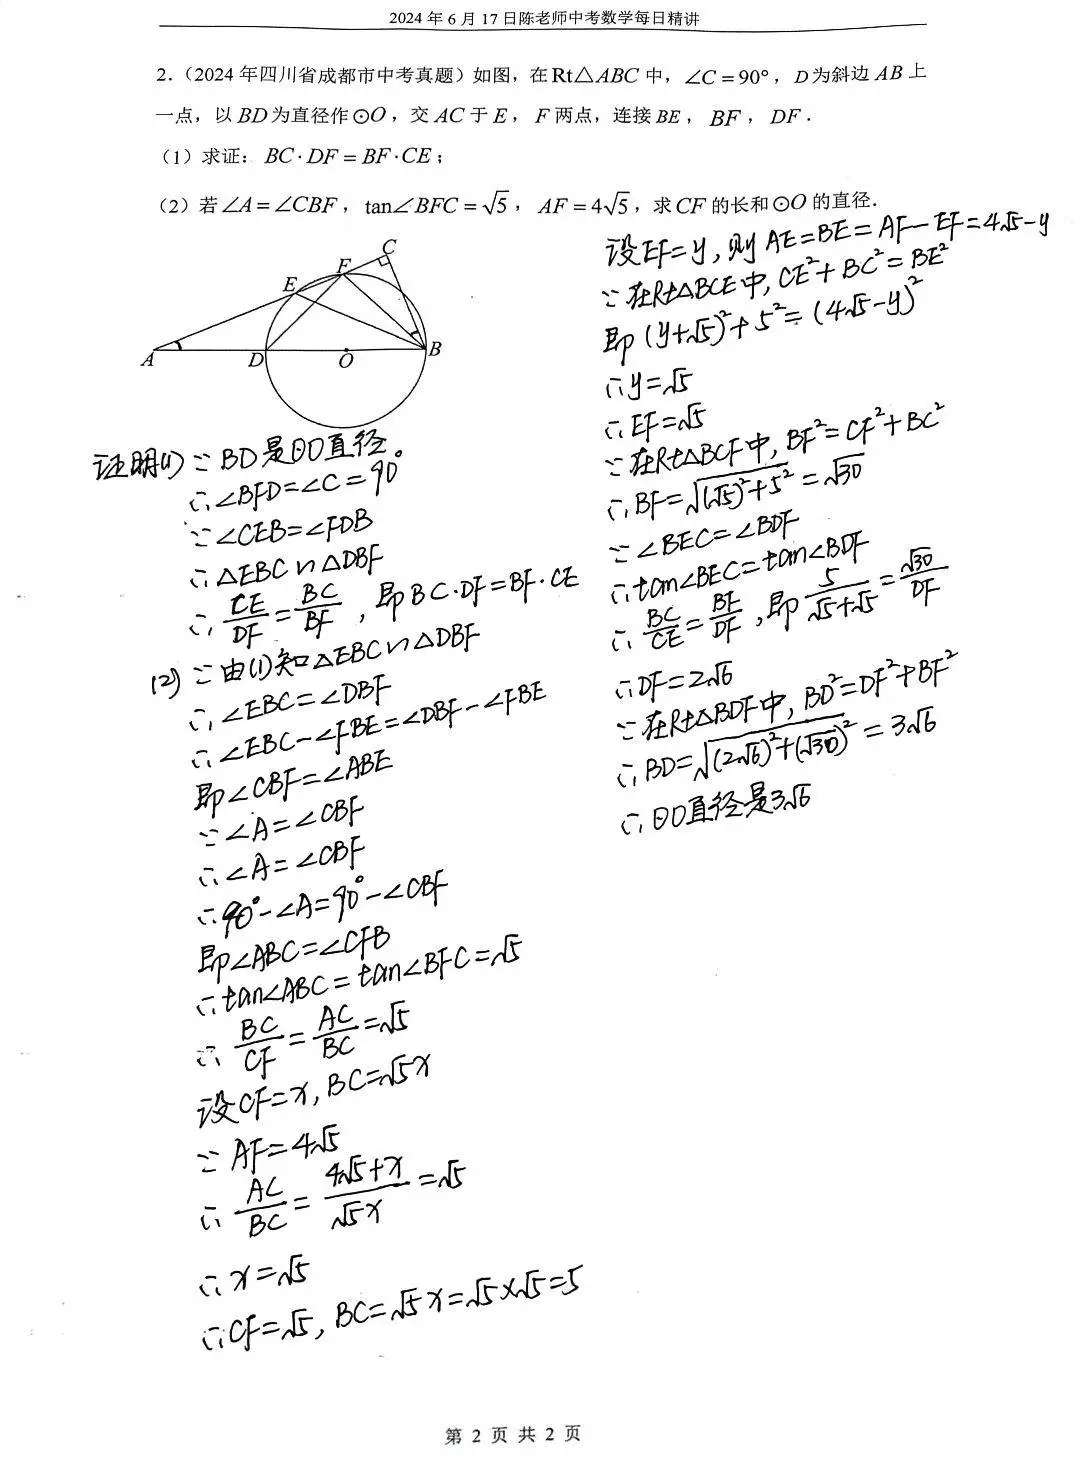 2024年6月17日陈老师中考数学每日精讲
2.（2024年四川省成都市中考真题）如图，在Rt△ABC中，∠C=90°，D为斜边AB上
一点，以BD为直径作⊙O，交AC于E，F两点，连接BE，BF，DF．
（1）求证：BC·DF=BF·CE；
（2）若∠A=∠CBF，tan∠BFC=√5，AF=4√5，求CF的长和⊙O的直径．
C
F
E
A
D
O
B
证明(1) ∵BD是⊙O直径。
∴∠BFD=∠C=90°
∵∠CEB=∠FDB
∴△EBC∽△DBF
∴CE/DF=BC/BF，即BC·DF=BF·CE
(2) ∵由(1)知△EBC∽△DBF
∴∠EBC=∠DBF
∴∠EBC-∠FBE=∠DBF-∠FBE
即∠CBF=∠ABE
∵∠A=∠CBF
∴∠A=∠CBF
∴90°-∠A=90°-∠CBF
即∠ABC=∠CFB
∴tan∠ABC=tan∠BFC=√5
∴BC/CF=AC/BC=√5
设CF=x，BC=√5x
∵AF=4√5
∴AC/BC=(4√5+x)/(√5x)=√5
∴x=√5
∴CF=√5，BC=√5x=√5×√5=5
设EF=y，则AE=BE=AF-EF=4√5-y
∵在Rt△BCE中，CE²+BC²=BE²
即(y+√5)²+5²=(4√5-y)²
∴y=√5
∴EF=√5
∵在Rt△BCF中，BF²=CF²+BC²
∴BF=√((√5)²+5²)=√30
∵∠BEC=∠BDF
∴tan∠BEC=tan∠BDF
∴BC/CE=BF/DF，即5/(√5+√5)=√30/DF
∴DF=2√6
∵在Rt△BDF中，BD²=DF²+BF²
∴BD=√((2√6)²+(√30)²)=3√6
∴⊙O直径是3√6
第 2 页 共 2 页